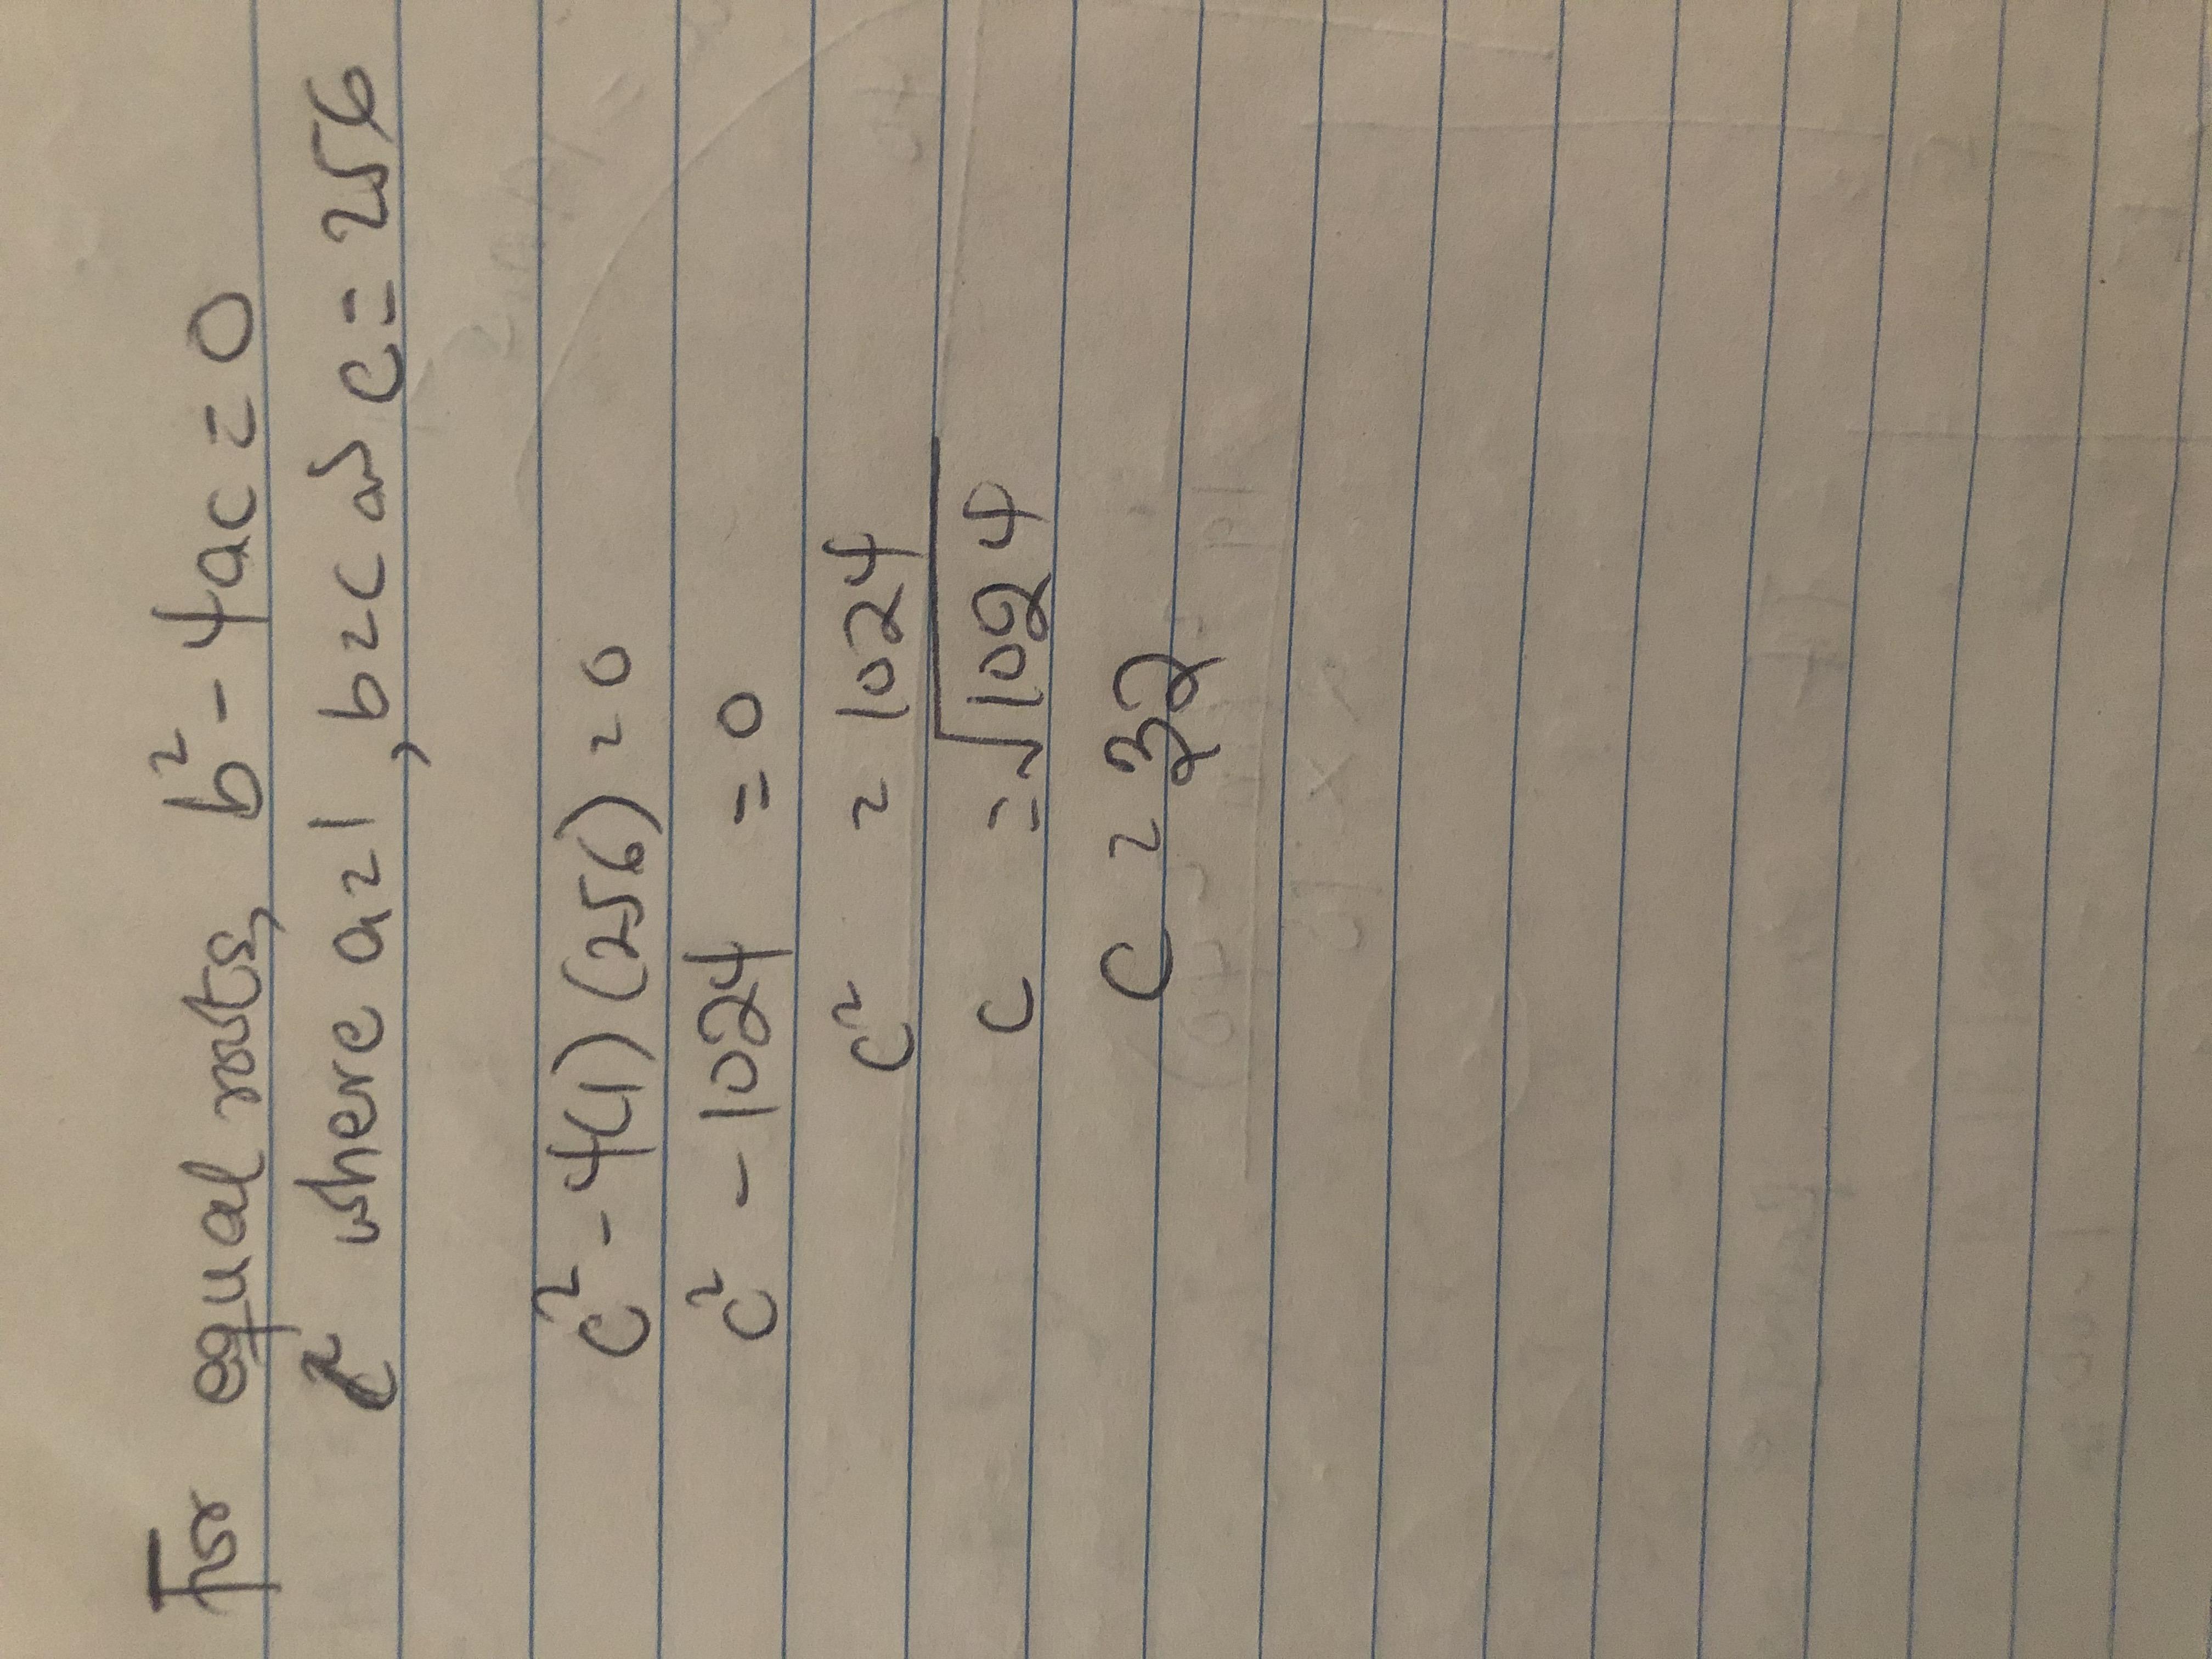 For equal roots, b² - 4ac = 0
where a = 1, b = c and c = 256
c² - 4(1)(256) = 0
c² - 1024 = 0
c² = 1024
c = √1024
c = 32